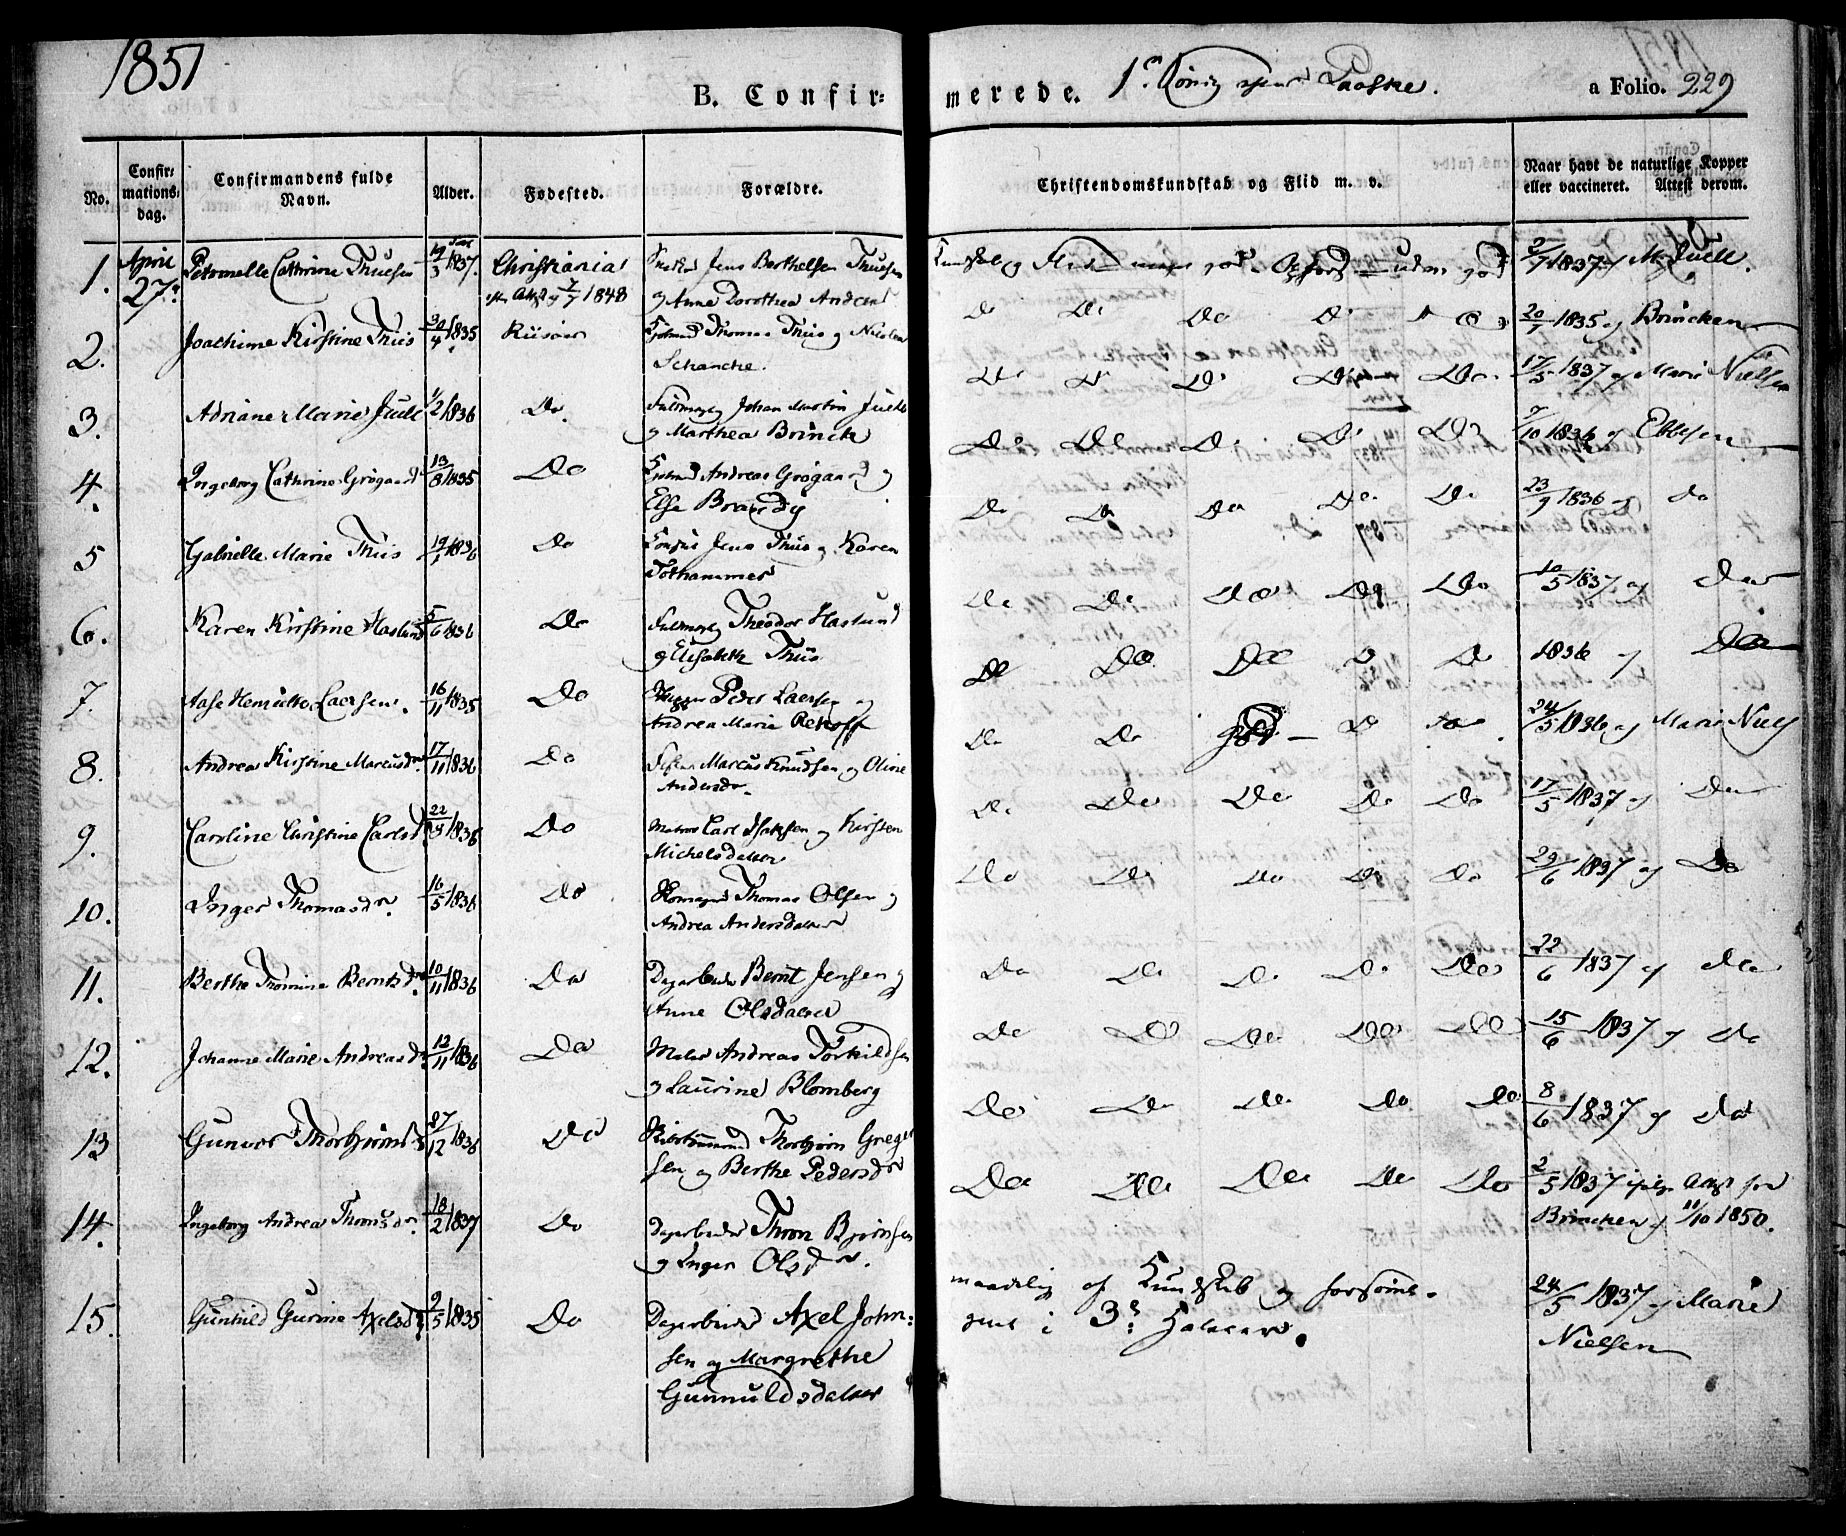 1851
B. Confir- merede. 1ste Søndag efter Paaske. a Folio. 229
No. Confirmations dag. Confirmandens fulde Navn. Alder. Fødested. Forældre. Christendomskundskab og Flid m. v. Naar havt de naturlige Kopper eller vaccineret. Attest derom.
1. April Petronelle Cathrine Thuesen 19/3 1837. Christiania Jens Berthelsen Thuesen Kundskab og Flid meget god. Opførsel god 2/7 1837 af M. Juell.
27de Attest af 7/7 1848 og Anna Dorothea Andersen
2. Joachime Kirstine Thiis 30/4 1835 Riisøer Thomas Thiis og Nicoline Do Do Do Do Do 20/7 1835 af Brincken
Schanche.
3. Adriane Marie Juell 1/2 1836 Do. Fuldmægt Johan Martin Juell Do Do Do Do Do 17/5 1837 af Marie Nielsen
og Marthea Brinch
4. Ingeborg Cathrine Grøgaard 13/8 1835 Do Andreas Grøgaard og Do Do Do Do Do 7/10 1836 af Ebbesen
Else Brandy
5 Gabrielle Marie Thiis 19/1 1836 Do Consul Jens Thiis og Karen Do Do Do Do Do 23/9 1836 af do
Tothammer
6. Karen Kirstine Haslund 5/6 1836 Do Fuldmægt Theodor Haslund Do Do Do Do Do 10/5 1837 af Do
og Elisabeth Thiis
7. Aase Henriette Laersen. 16/11 1835 Do Peder Laersen og Do Do Do Do Do 1836 af Do
Andrea Marie Rekoff
8. Andrea Kirstine Marcusdr. 17/11 1836 Do Marcus Knudsen og Oline Do Do god Do Do 24/5 1836 af Marie Niels
Andersdr.
9. Caroline Christine Carlsdr 22/9 1836 Do Matros Carl Isaksen og Kirsten Do Do Do Do Do 17/5 1837 af Do
Michelsdatter
10. Inger Thomasdr. 16/5 1836 Do Thomas Olsen og Do Do Do Do Do 29/6 1837 af Do
Andrea Andersdatter
11. Berthe Thomine Berntsdr. 10/11 1836 Do Dagarbeider Bernt Jensen og Do Do Do Do Do 22/6 1837 af Do
Anne Olsdatter
12. Johanne Marie Andreasdr 12/11 1836 Do Maler Andreas Torkildsen Do Do Do Do Do 15/6 1837 af Do
og Laurine Blomberg
13 Gunvor Thorbjørnsdr 27/12 1836 Do Thorbjørn Greger Do Do Do Do Do 8/6 1837 af Do
sen og Berthe Pedersdr
14. Ingeborg Andrea Thomsdr. 18/2 1837 Do Dagarbeider Thom Bjørnsen Do Do Do Do Do 2/5 1837 ifølge Attest fra
og Inger Olsdr. Brincken af 11/10 1850.
15. Gunhild Gurine Axelsdr 9/5 1835 Do Dagarbeider Axel John- maadelig af Kundskab og forsøm- 24/5 1837 af Marie
sen og Margrethe i 3de Nielsen
Gunnuldsdatter